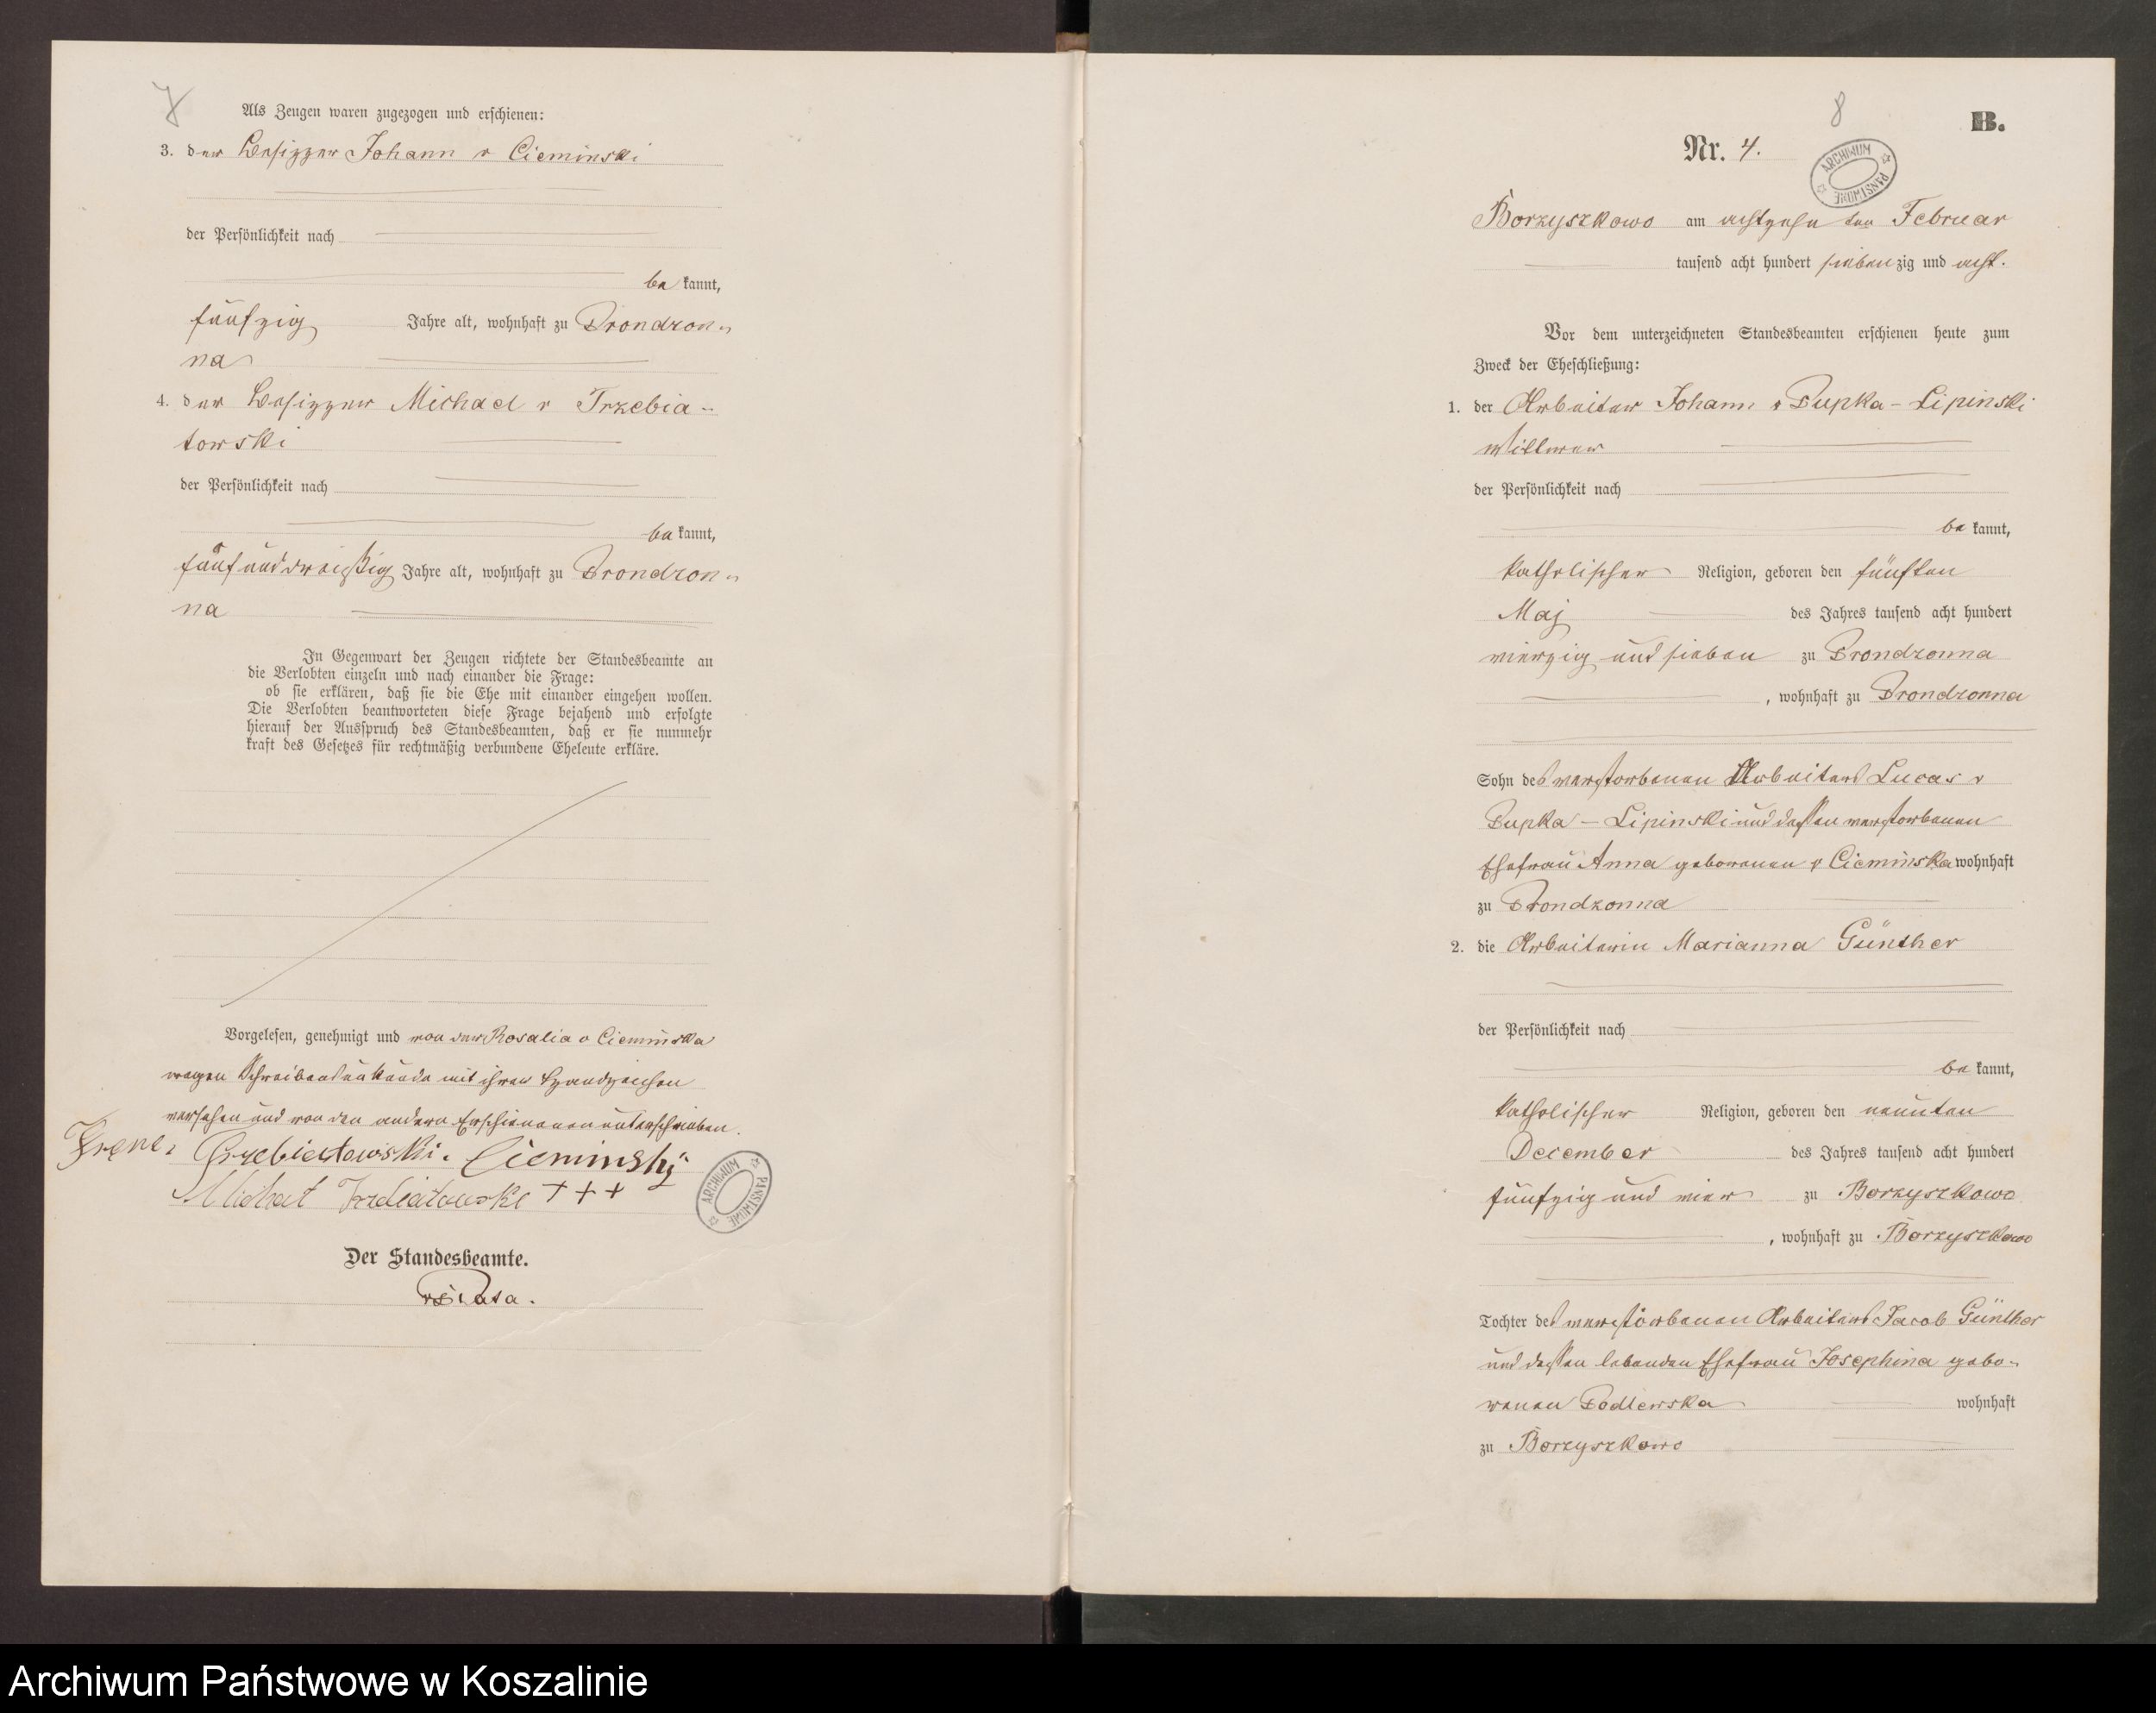 7
Als Zeugen waren zugezogen und erschienen:
3. der Besitzer Johann v Cieminski
der Persönlichkeit nach
be kannt,
fünfzig Jahre alt, wohnhaft zu Prondzon-
na
4. der Besitzer Michael v Trzebia-
towski
der Persönlichkeit nach
be kannt,
fünfunddreißig Jahre alt, wohnhaft zu Prondzon-
na
In Gegenwart der Zeugen richtete der Standesbeamte an
die Verlobten einzeln und nach einander die Frage:
ob sie erklären, daß sie die Ehe mit einander eingehen wollen.
Die Verlobten beantworteten diese Frage bejahend und erfolgte
hierauf der Ausspruch des Standesbeamten, daß er sie nunmehr
kraft des Gesetzes für rechtmäßig verbundene Eheleute erkläre.
Vorgelesen, genehmigt und von der Rosalia v Cieminska
wegen Schreibensunkunde mit ihren Handzeichen
versehen und von den andern Erschienenen unterschrieben.
Trzebiatowski. Cieminsky
Michał Trzebiatowski +++
ARCHIWUM PAŃSTWOWE
Der Standesbeamte.
8
B.
Nr. 4.
ARCHIWUM PAŃSTWOWE
Borzyszkowo am achtzehn ten Februar
tausend acht hundert sieben zig und acht.
Vor dem unterzeichneten Standesbeamten erschienen heute zum
Zweck der Eheschließung:
1. der Arbeiter Johann v Pupka - Lipinski
Wittwer
der Persönlichkeit nach
be kannt,
katholischer Religion, geboren den fünften
Maj des Jahres tausend acht hundert
vierzig und sieben zu Prondzonna
, wohnhaft zu Prondzonna
Sohn des verstorbenen Arbeiters Lucas v
Pupka - Lipinski und dessen verstorbenen
Ehefrau Anna geborenen v Cieminska wohnhaft
zu Prondzonna
2. die Arbeiterin Marianna Günther
der Persönlichkeit nach
be kannt,
katholischer Religion, geboren den neunten
December des Jahres tausend acht hundert
fünfzig und vier zu Borzyszkowo
, wohnhaft zu Borzyszkowo
Tochter des verstorbenen Arbeiters Jacob Günther
und dessen lebenden Ehefrau Josephina gebo-
renen Podlewska wohnhaft
zu Borzyszkowo
Archiwum Państwowe w Koszalinie